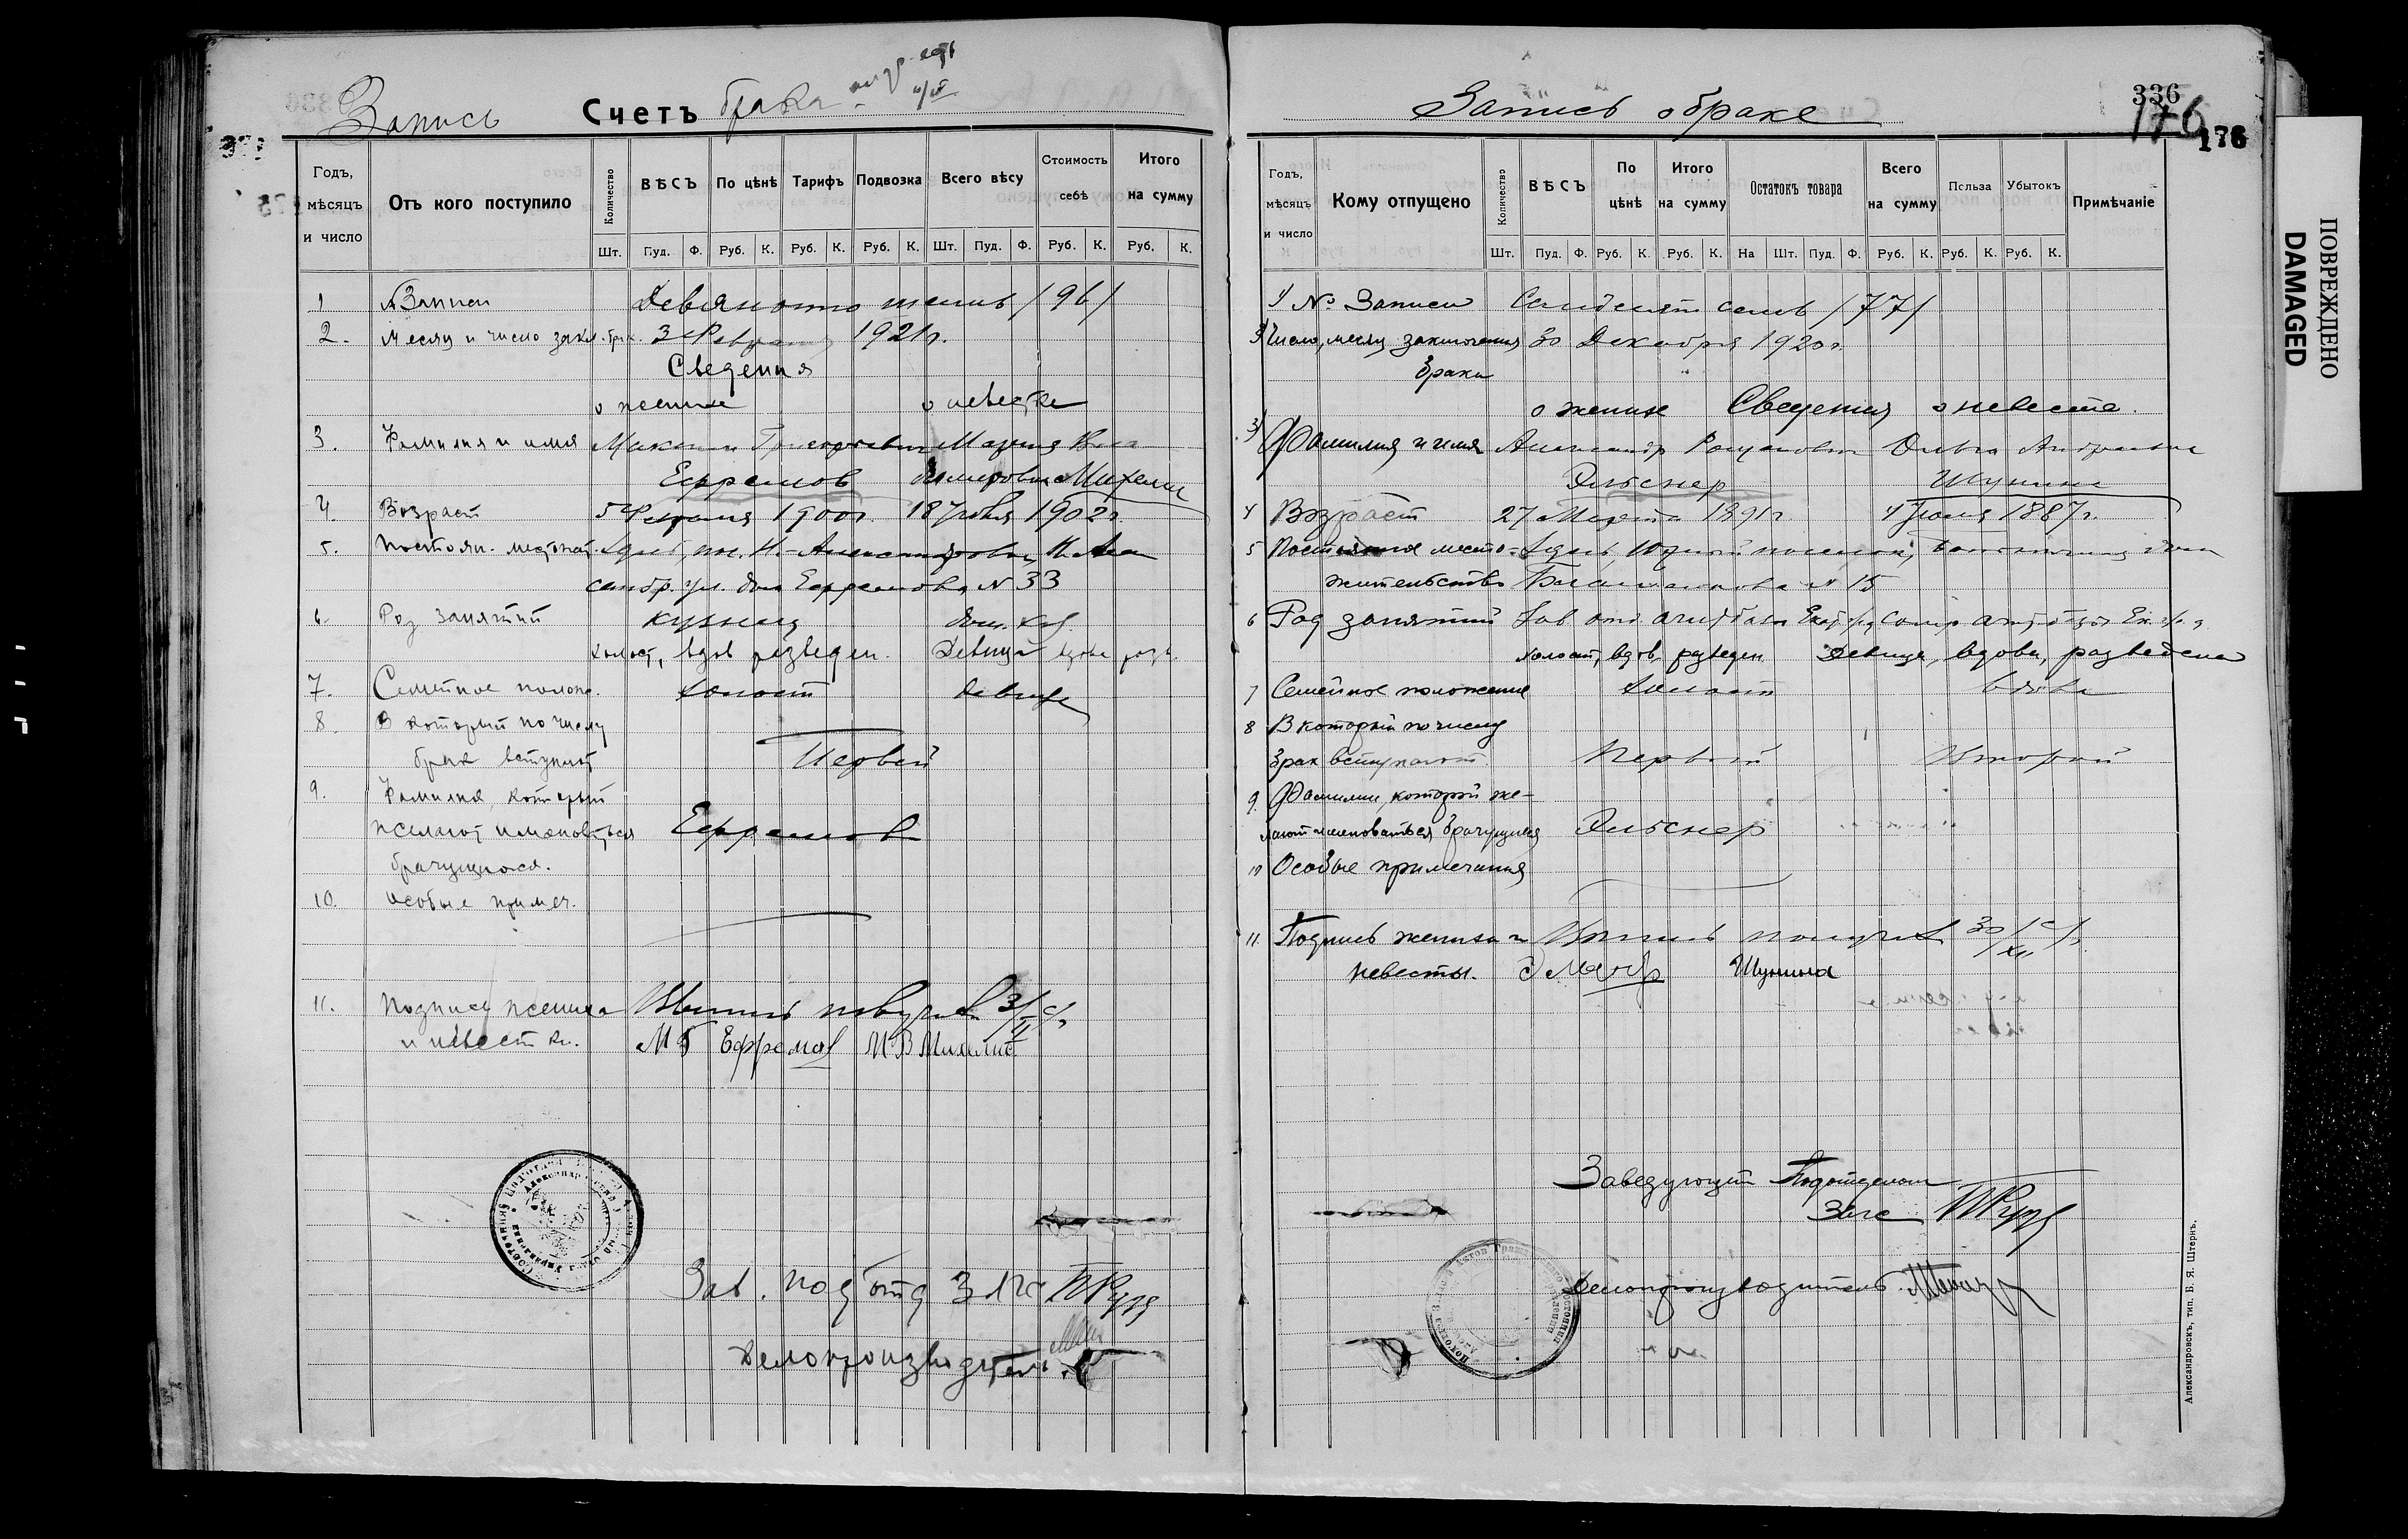 Запись Счетъ брака
Годъ, мѣсяцъ и число
Отъ кого поступило
Количество
ВѢСЪ
По цѣнѣ
Тарифъ
Подвозка
Всего вѣсу
Стоимость себѣ
Итого на сумму
Шт. Пуд. Ф. Руб. К. Руб. К. Руб. К. Шт. Пуд. Ф. Руб. К. Руб. К.
1 № Записи Девяносто шесть /96/
2. Месяц и число закл. брак. 3 Февраля 1921 г.
Сведения
о женихе о невесте
3. Фамилия и имя Максим Григорьевич Мария Вла
Ефремов димировна
4. Возраст 5 Февраля 1900 г. 18 1902 г.
5.
дом Ефремова № 33
6. Род занятий кузнец дом. хоз.
холост, вдов разведен. Девица вдова разв.
7. Семейное полож. холост девица
8. В который по числу
брак вступают Первый
9. Фамилия, которой
желают именоваться Ефремов
брачущиеся.
10. Особые примеч.
11. Подпись жениха Выпись получил 3/II с/г
и невесты. МГ Ефремов
Зав. подотд Загс
Делопроизводитель
Запись о браке
336
176
176
Годъ, мѣсяцъ и число
Кому отпущено
Количество
ВѢСЪ
По цѣнѣ
Итого на сумму
Остатокъ товара
Всего на сумму
Польза
Убытокъ
Примѣчаніе
Шт. Пуд. Ф. Руб. К. Руб. К. На Шт. Пуд. Ф. Руб. К. Руб. К. Руб. К.
1/ № Записи Семдесят семь /77/
Число, месяц заключения 30 Декабря 1920 г.
брака
о женихе Сведения о невесте.
3/ Фамилия и имя Александр Ольга Андреевна
Эльснер Шунина
4 Возраст 27 Марта 1891 г 4 1887 г.
5 Постоянное место-
жительство № 15
6 Род занятий
холост, вдов, разведен Девица, вдова, разведена
7 Семейное положение холост вдова
8 В который по числу
брак вступают Первый Второй
9. Фамилии, которой же-
лают именоваться брачущиеся Эльснер
10 Особые примечания
11. Подпись жениха и Выпись получил 30/XII с/г
невесты. Шунина
Заведующий Подотделом
Загс
Делопроизводитель
Александровскъ, тип. Б. Я. Штернъ.
ПОВРЕЖДЕНО
DAMAGED